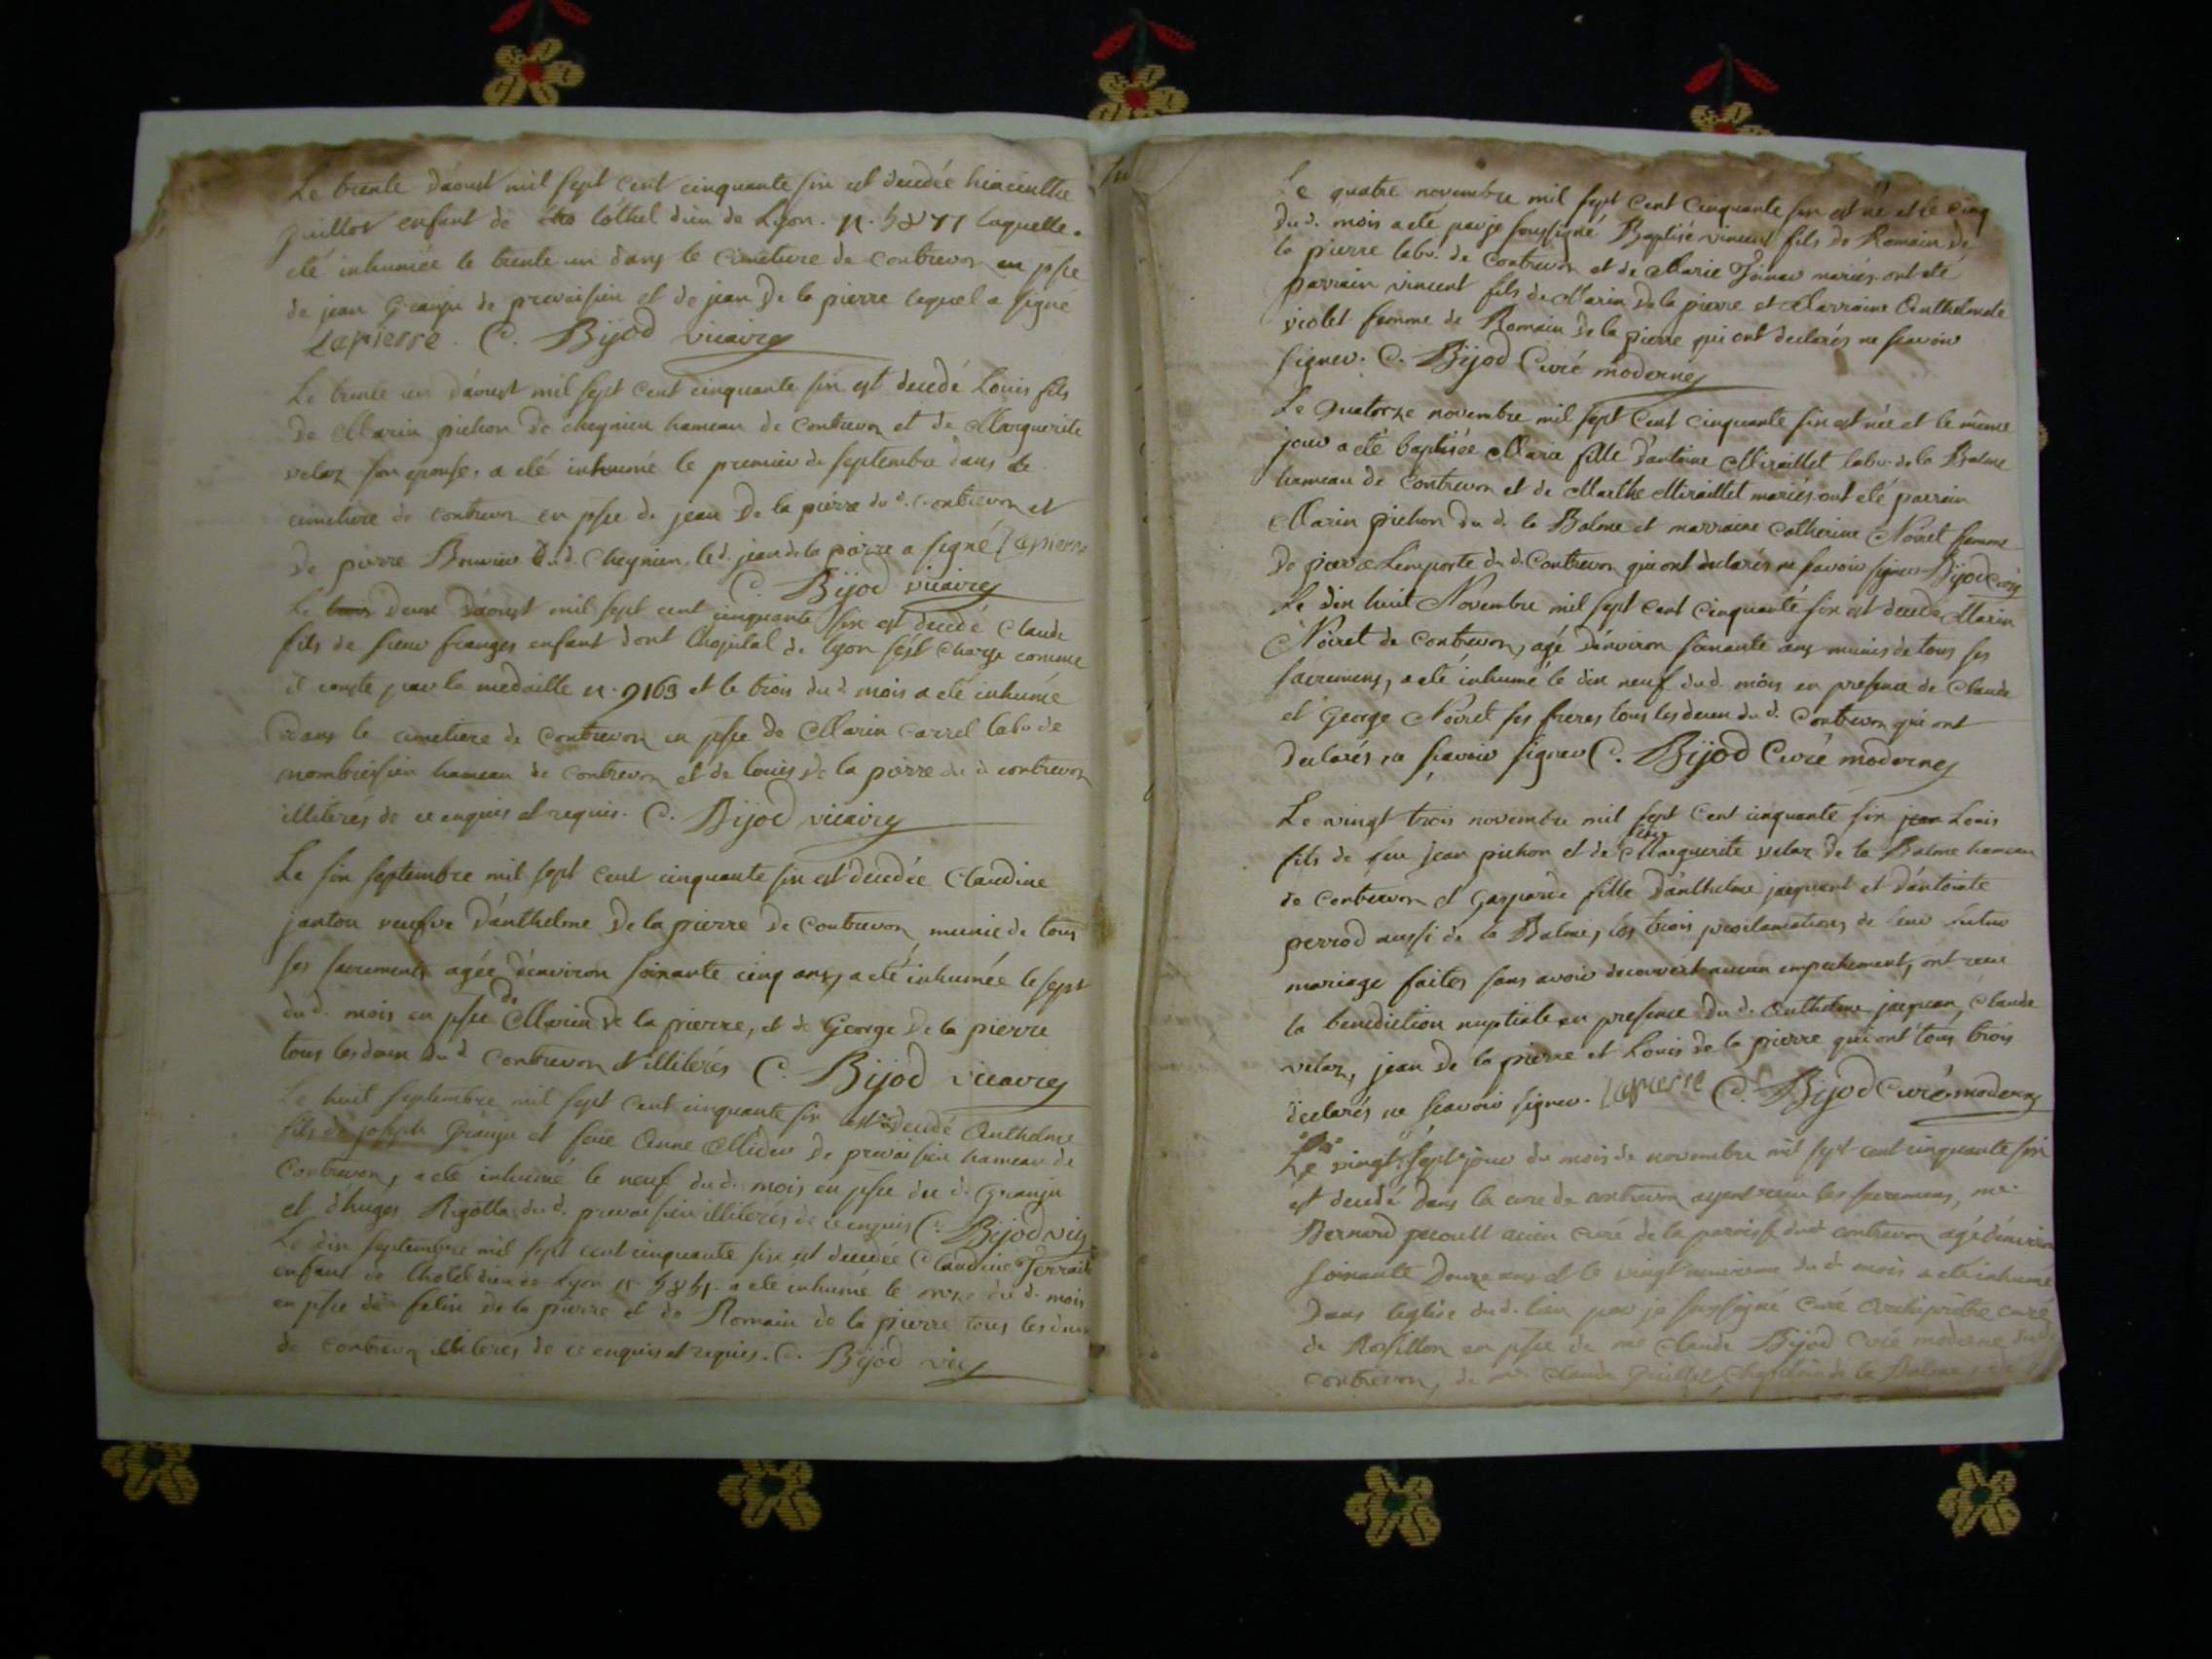 Le trente d'aoust mil sept cent cinquante six est decedée hiacinthe
guillot enfant de l'othel dieu de Lyon. n. laquelle a
eté inhumée le trente un dans le cimetiere de contrevoz en pñce
de jean Granju de prevaisieu et de jean de la pierre lequel a signé
Lapierre. C. Bijod vicaire
Le trente un d'aoust mil sept cent cinquante six est decedé Louis fils
de Marin pichon de cheynieu hameau de contrevoz et de Marguerite
velaz son epouse. a eté inhumé le premier de septembre dans le
cimetiere de contrevoz en pñce de jean de la pierre du d. contrevoz et
de pierre Bouvier du d. Cheynieu, le d. jean de la pierre a signé Lapierre
C. Bijod vicaire
Le trois deux d'aoust mil sept cent cinquante six est decedé Claude
fils de sieur franges enfant dont l'hopital de lyon s'est chargé comme
il conste par la medaille n. 9163 et le trois du d. mois a eté inhumé
dans le cimetiere de contrevoz en pñce de Marin carrel labr. de
nombresieu hameau de contrevoz et de louis de la pierre du d. contrevoz
illiterés de ce enquis et requis. C. Bijod vicaire
Le six septembre mil sept cent cinquante six est decedée Claudine
janton veufve d'anthelme de la pierre de contrevoz munie de tous
ses sacrements agée d'environ soixante cinq ans, a eté inhumée le sept
du d. mois en pñce de Marin de la pierre, et de George de la pierre
tous les deux du d. contrevoz illiterés C. Bijod vicaire
Le huit septembre mil sept cent cinquante six est decedé Anthelme
fils de joseph Granju et feue Anne de prevaisieu hameau de
Contrevoz, a eté inhumé le neuf du d. mois en pñce du d. Granju
et d'huges Rigottaz du d. prevaisieu illiterés de ce enquis C. Bijod vic
Le dix septembre mil sept cent cinquante six est decedée Claudine
enfant de l'hotel dieu de Lyon n. a eté inhumé le onze du d. mois
en pñce de felix de la pierre et de Romain de la pierre tous les deux
de contrevoz illiterés de ce enquis et requis. C. Bijod vic
Le quatre novembre mil sept cent cinquante six est né et le cinq
du d. mois a eté par je soussigné Baptisé vincent fils de Romain de
la pierre labr. de contrevoz et de Marie mariés. ont eté
parrain vincent fils de Marin de la pierre et Marraine Anthelmete
violet femme de Romain de la pierre qui ont declarés ne scavoir
signer. C. Bijod Curé moderne
Le quatorze novembre mil sept cent cinquante six est née et le même
jour a eté baptisée Marie fille d'antoine Miraillet labr. de la Balme
hameau de contrevoz et de Marthe Miraillet mariés. ont eté parrain
Marin pichon du d. la Balme et marraine catherine Noiret femme
de pierre Lemporte du d. Contrevoz qui ont declarés ne scavoir signer Bijod curé
Le dix huit Novembre mil sept cent cinquante six est decedé Marin
Noiret de contrevoz, agé d'environ soixante ans munis de tous ses
sacremens, a eté inhumé le dix neuf du d. mois en presence de Claude
et George Noiret ses freres tous les deux du d. Contrevoz qui ont
declarés ne scavoir signer C. Bijod Curé moderne
Le vingt trois novembre mil sept cent cinquante six jean Louis
fils de feu jean pichon et de feue Marguerite velaz de la Balme hameau
de contrevoz et gasparde fille d'anthelme jacquant et d'antointe
perrod aussi de la Balme, les trois proclamations de leur futur
mariage faites sans avoir decouvert aucun empechement, ont receu
la benediction nuptiale en presence du d. Anthelme jacquan, Claude
velaz, jean de la pierre et Louis de la pierre qui ont tous trois
declarés ne scavoir signer. Lapierre C. Bijod Curé moderne
Le vingt sept jour du mois de novembre mil sept cent cinquante six
est decedé dans la cure de contrevoz ayant receu les sacremens, me
Bernard ancien curé de la paroisse du d. contrevoz agé d'environ
soixante douze ans et le vingt neuvieme du d. mois a eté inhumé
dans l'eglise du d. lieu par je soussigné curé Archipretre curé
de Rossillon en pñce de me Claude Bijod Curé moderne du d.
contrevoz, de me Claude Guillet Chapelain de la Balme